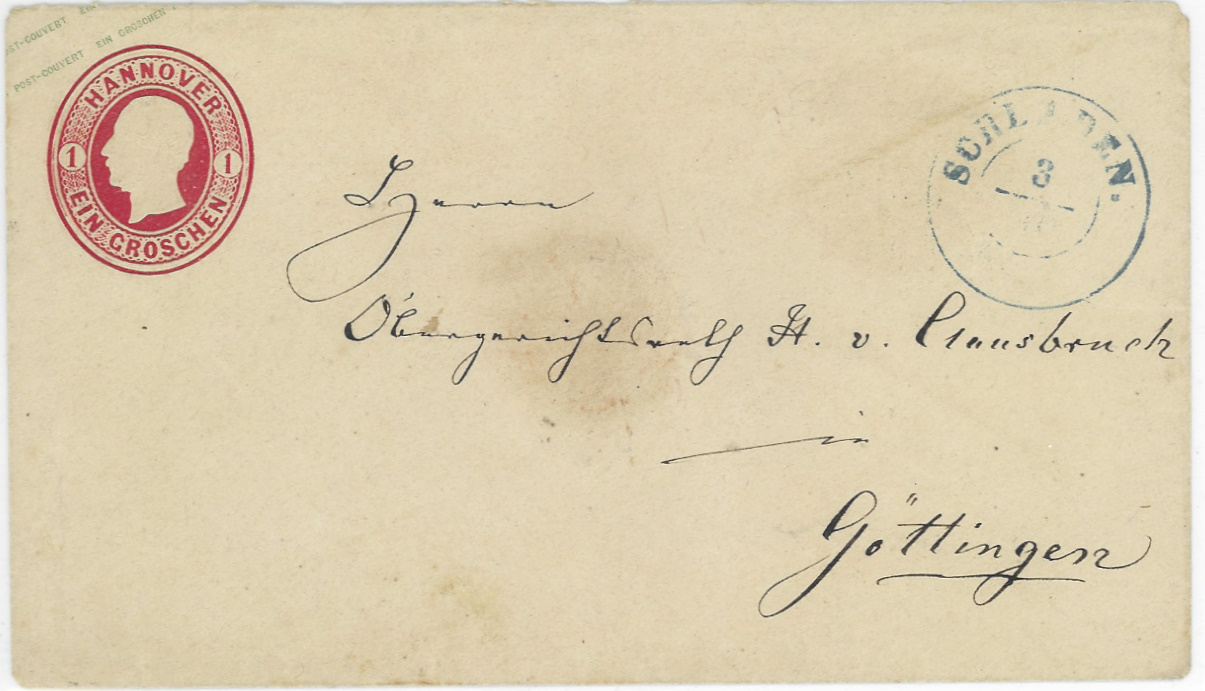 POST-COUVERT EIN GROSCHEN
HANNOVER
1 1
EIN GROSCHEN
SCHLADEN.
3
Herrn
Obergerichtsrath H. v. Clausbruch
in
Göttingen